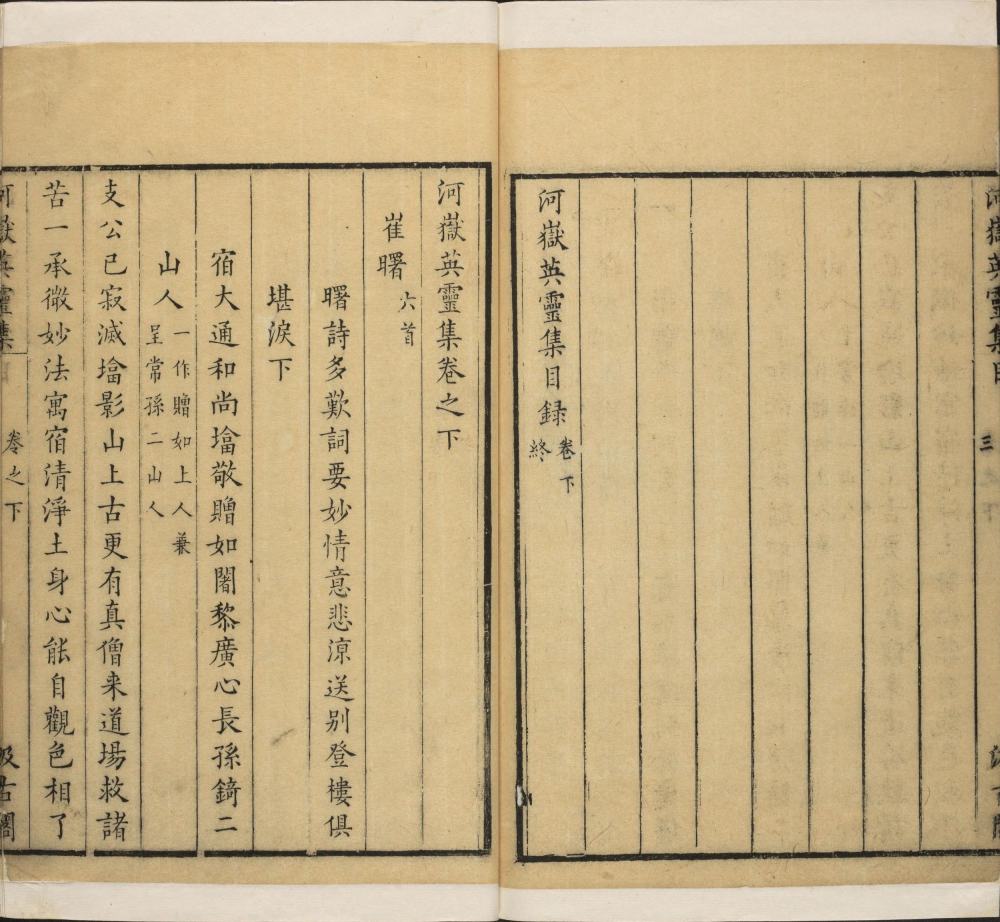 河嶽英靈集目
三
河嶽英靈集目録卷下
終
河嶽英靈集卷之下
崔曙六首
曙詩多歎詞要妙情意悲涼送别登樓俱
堪淚下
宿大通和尚塔敬贈如闍黎廣心長孫錡二
山人一作贈如上人兼
呈常孫二山人
支公已寂滅塔影山上古更有真僧来道場救諸
苦一承微妙法寓宿清淨土身心能自觀色相了
河嶽英靈集
卷之下
汲古閣